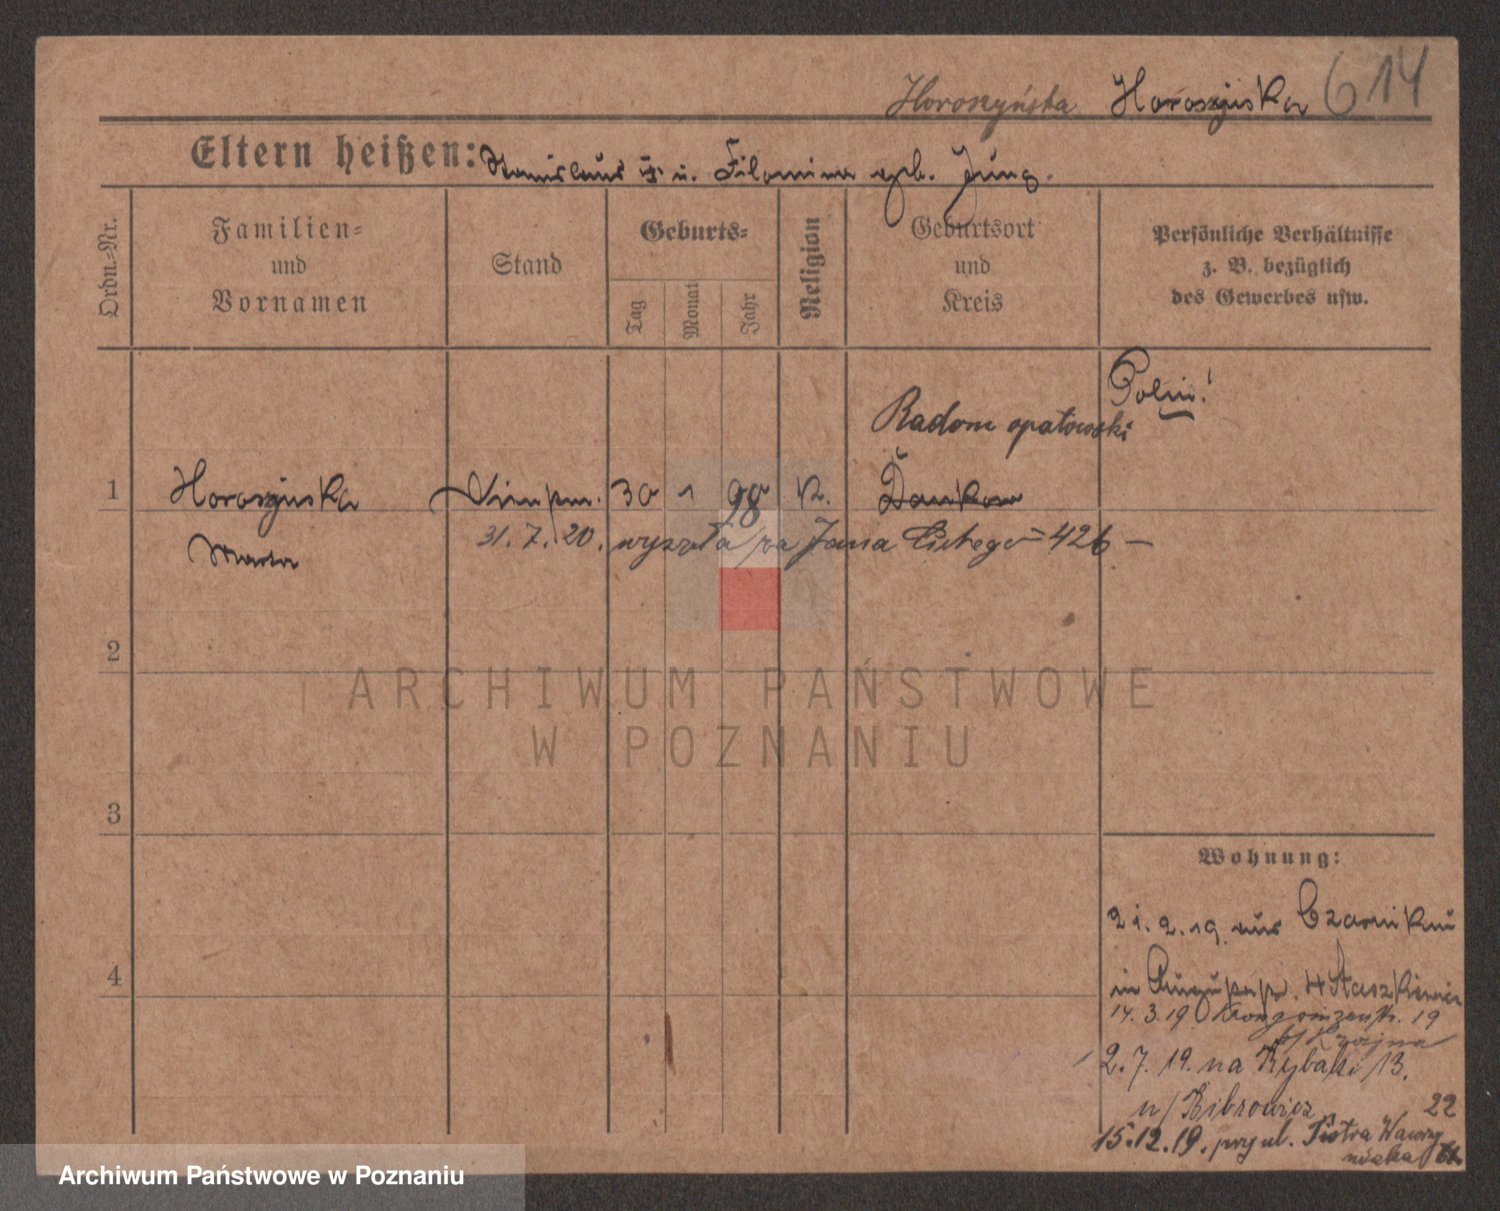 Horoszyńska Horoszinska 614
Eltern heißen: Stanislaus u. Filomina geb. Jung.
Ordn.-Nr.
Familien-
und
Vornamen
Stand
Geburts-
Tag
Monat
Jahr
Religion
Geburtsort
und
Kreis
Persönliche Verhältnisse
z. B. bezüglich
des Gewerbes usw.
Polin!
Radom opatowski
1 Horoszinska 30 1 98 K. Dankow
31. 7. 20. wyszła Jana Lutego = 426 —
Marta
2
3
4
Wohnung:
21. 2. 19 aus Czarnikau
in
14. 3. 19 Kronprinzenstr. 19
b/ Krajna
2. 7. 19. na Rybaki 13.
u/ Bibrowicz 22
15.12.19. przy ul. Piotra Wawrzy
niaka
ARCHIWUM PAŃSTWOWE
W POZNANIU
Archiwum Państwowe w Poznaniu